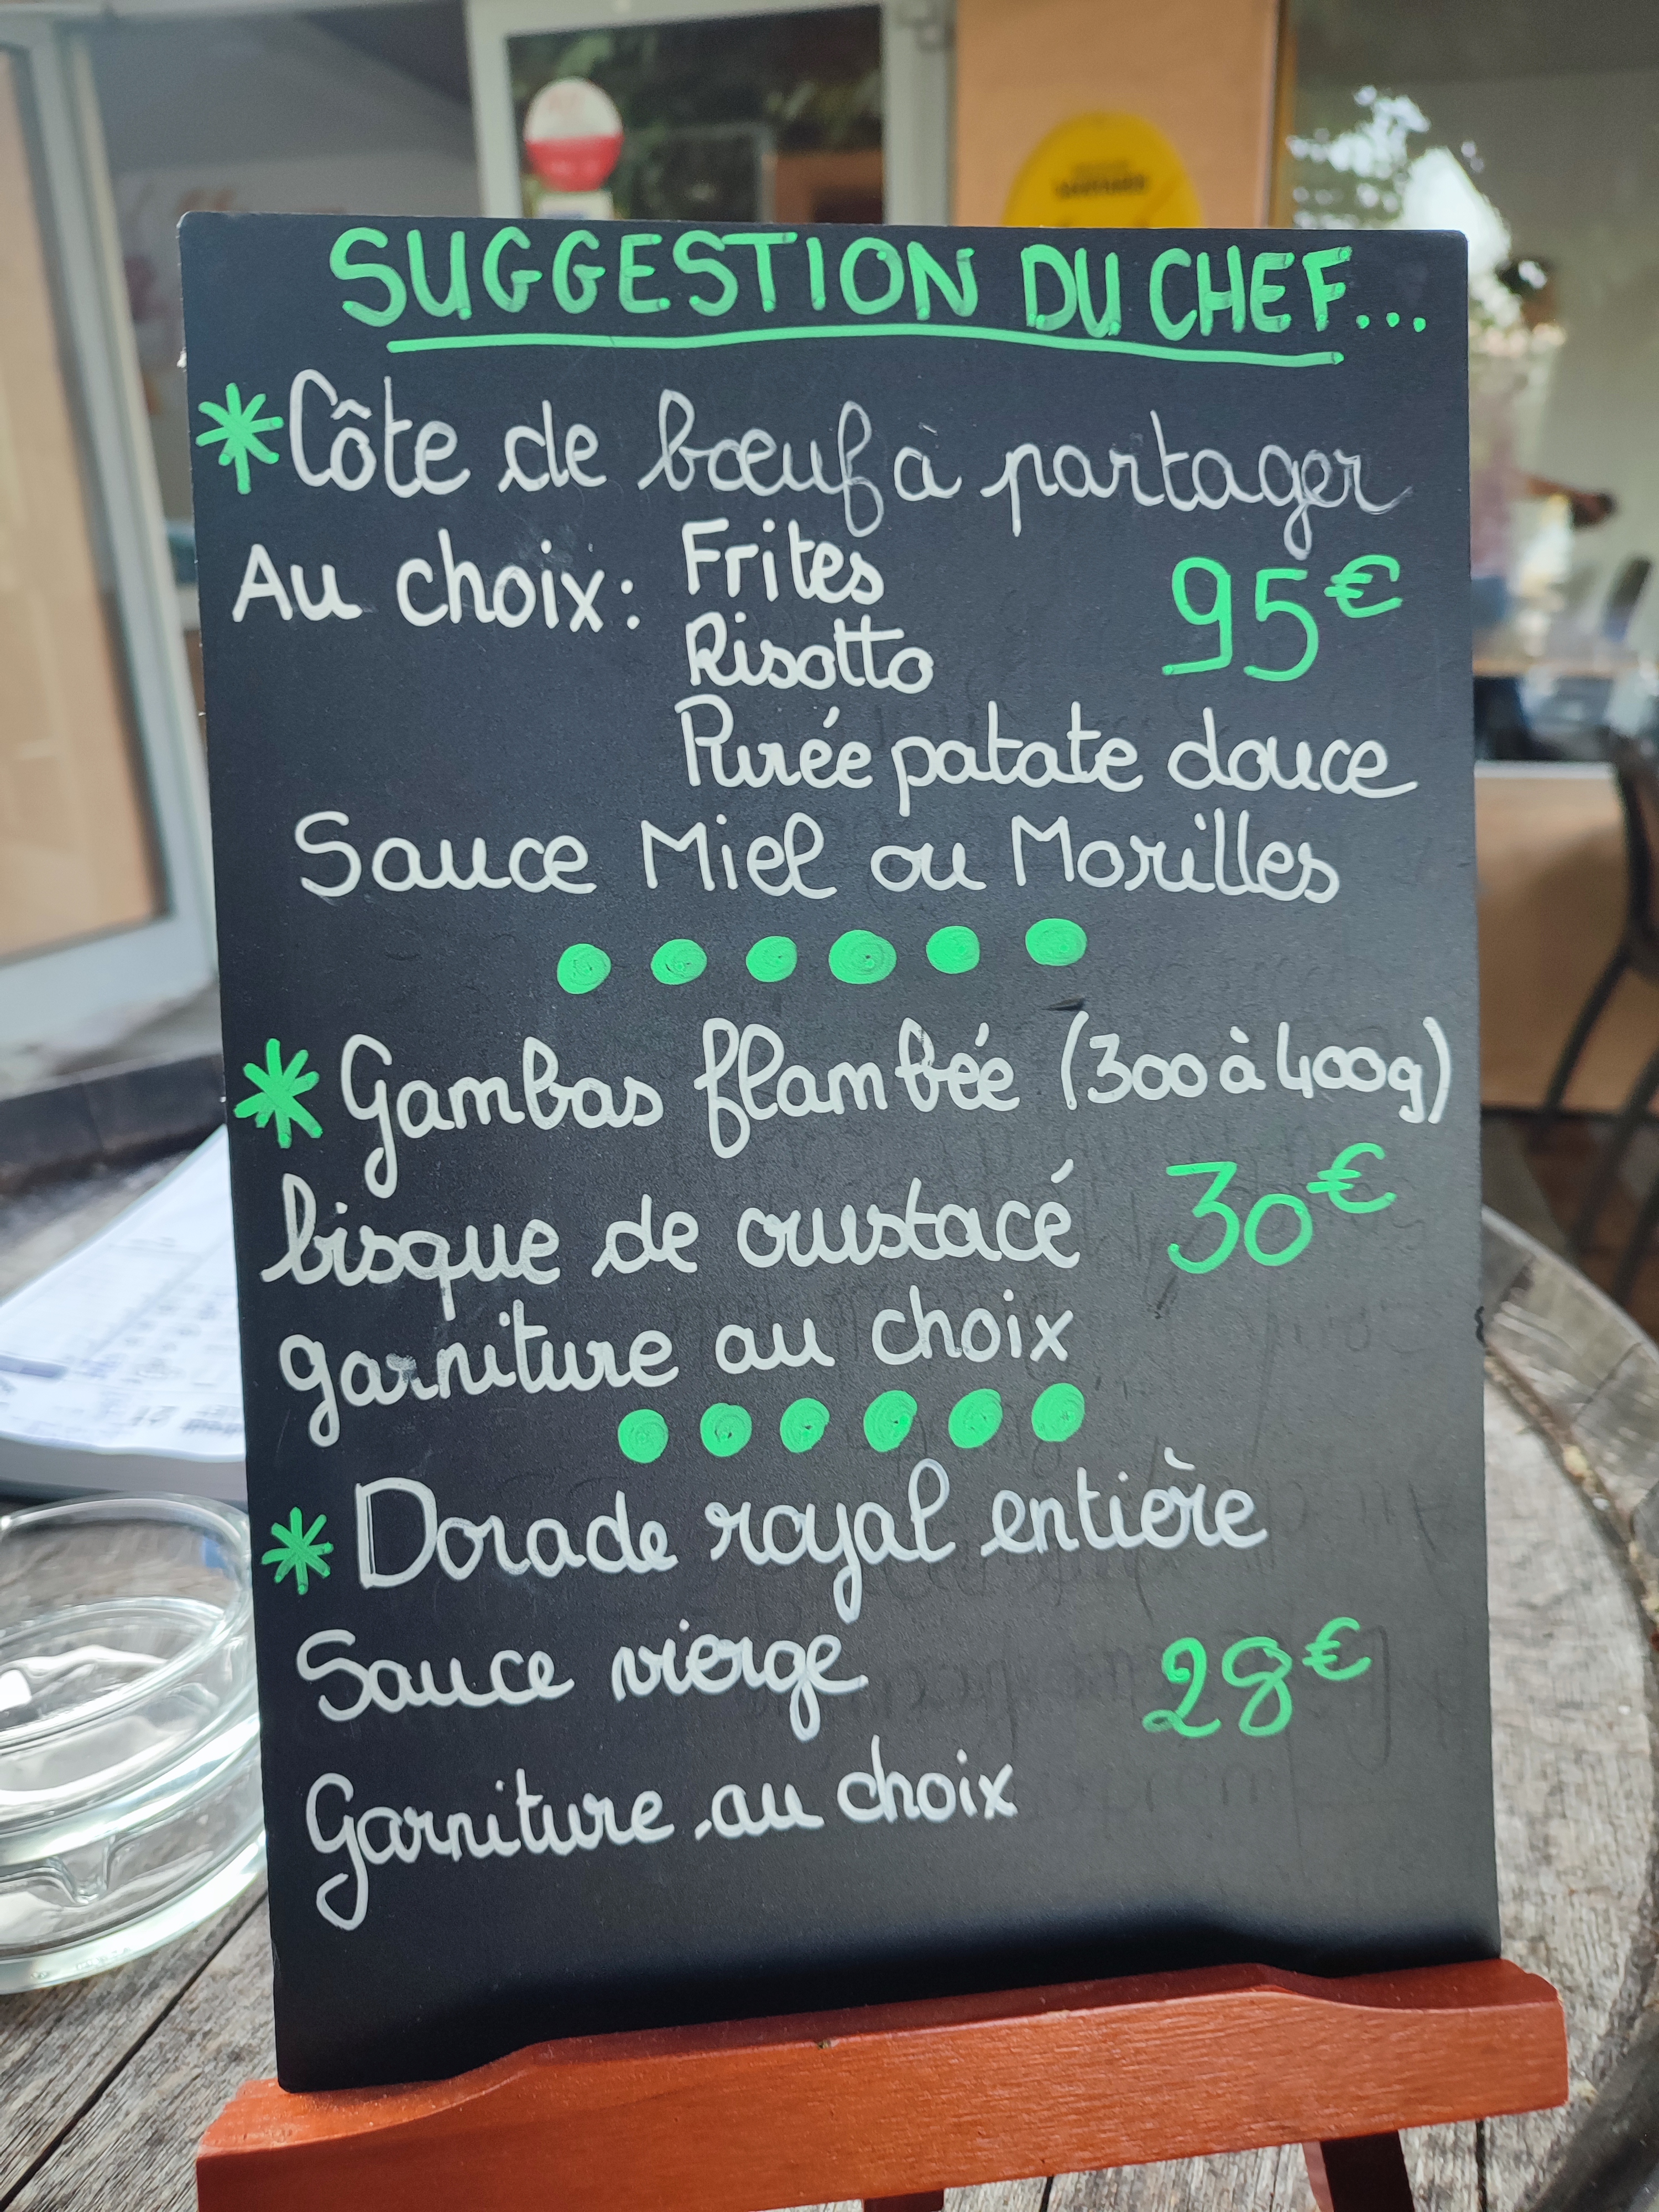 SUGGESTION DU CHEF...
*Côte de bœuf à partager
Au choix: Frites 95€
Risotto
Purée patate douce
Sauce Miel ou Morilles
* Gambas flambée (300 à 400g)
bisque de crustacé 30€
garniture au choix
* Dorade royal entière
Sauce vierge 28€
Garniture au choix